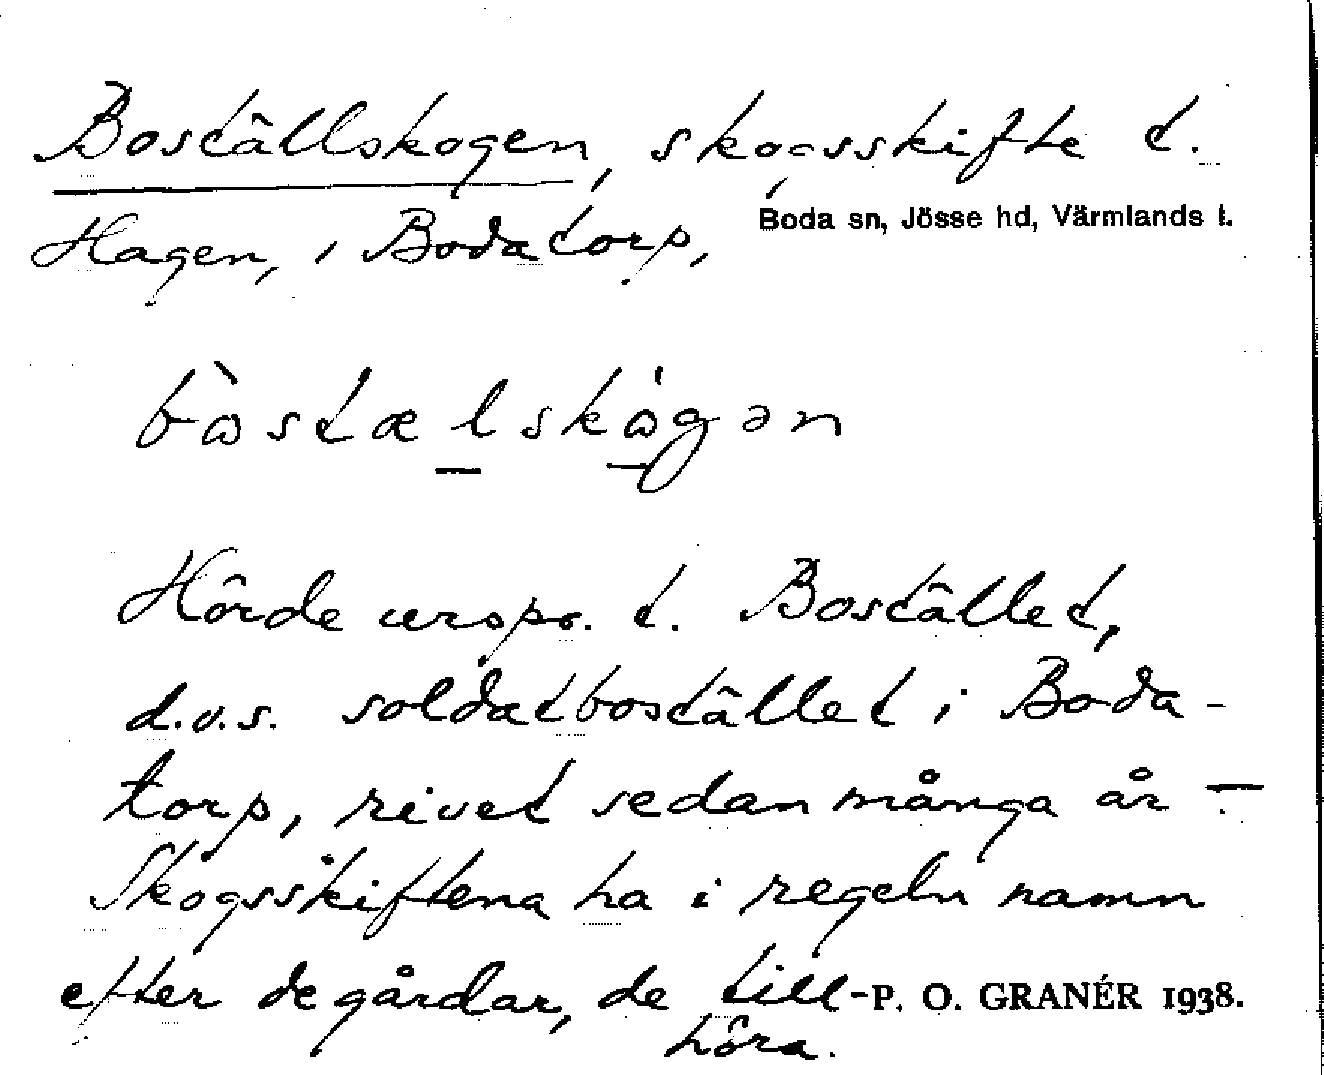 Boställskogen, skogsskifte t.
Boda sn, Jösse hd, Värmlands l.
Hagen, i Bodatorp,
bòstælskógən
Hörde urspr. t. Bostället,
d.v.s. soldatbostället i Boda-
torp, rivet sedan många år –
Skogsskiftena ha i regeln namn
efter de gårdar, de till-
höra.
P. O. GRANÉR 1938.